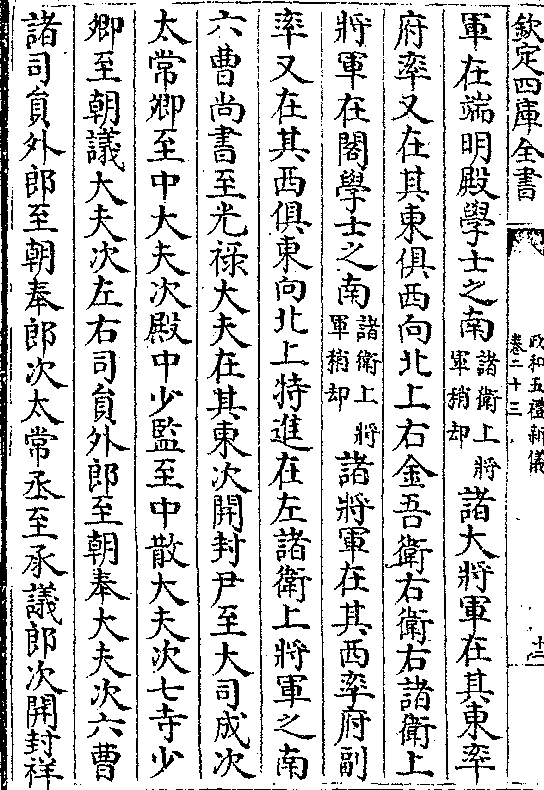 欽定四庫全書
政和五禮新儀
卷二十三
十二
軍在端明殿學士之南諸衛上將軍稍却諸大將軍在其東率
府率又在其東俱西向北上右金吾衛右衛右諸衛上
將軍在閣學士之南諸衛上將軍稍却諸將軍在其西率府副
率又在其西俱東向北上特進在左諸衛上將軍之南
六曹尚書至光祿大夫在其東次開封尹至大司成次
太常卿至中大夫次殿中少監至中散大夫次七寺少
卿至朝議大夫次左右司員外郎至朝奉大夫次六曹
諸司員外郎至朝奉郎次太常丞至承議郎次開封祥